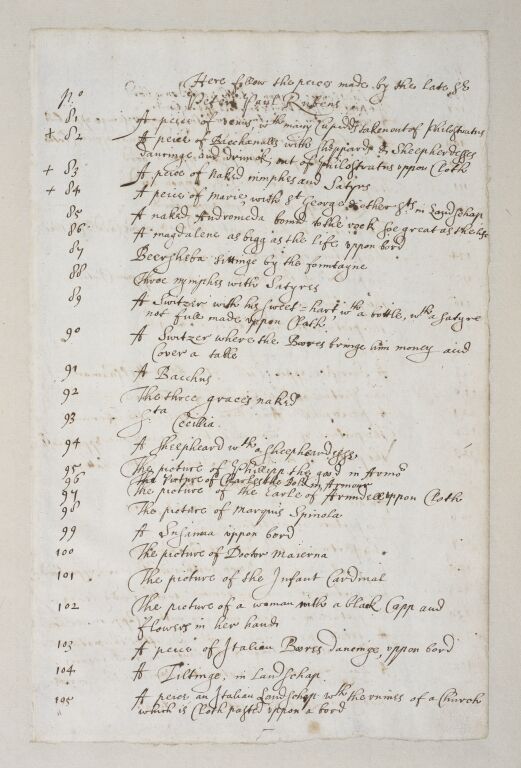 Here follow the peices made by the late Sr
No Peter Paul Rubens
81 A peice of Venus wth many Cupides taken out of Philostratus
+ 82 A peice of Bacchanalls with Sheppards & Sheepherdesses
dancinge and drunck, out of Philostratus uppon Cloth
+ 83 A peice of naked nimphes and Satyrs
+ 84 A peice of marie with St George & other Sts in Landschap
85 A naked Andromeda bound to the rock soe great as the life
86 A magdalene as bigg as the life uppon bord
87 Beersheba sittinge by the fountayne
88 Three nymphes with Satyres
89 A Switzer with his sweet=hart, wth a bottle, wth a satyre
not full made uppon Cloth
90 A Switzer where the Bores bringe him money and
Cover a table
91 A Bacchus
92 The three graces naked
93 Sta Cecilia
94 A sheepheard wth a sheepherdesse
95 The picture of Phillipp the good in Armor
96 The Picture of Charles the Bold in Armour
97 The picture of the Earle of Arundell uppon Cloth
98 The picture of Marquis Spinola
99 A Susanna uppon bord
100 The picture of Doctor Maierna
101 The picture of the Infant Cardinal
102 The picture of a woman with a black Capp and
flowers in her hands
103 A peice of Italian Bores dancinge, uppon bord
104 A Tiltinge, in landschap
105 A peice an Italian Landschap wth the ruines of a Church
which is Cloth pasted uppon a bord